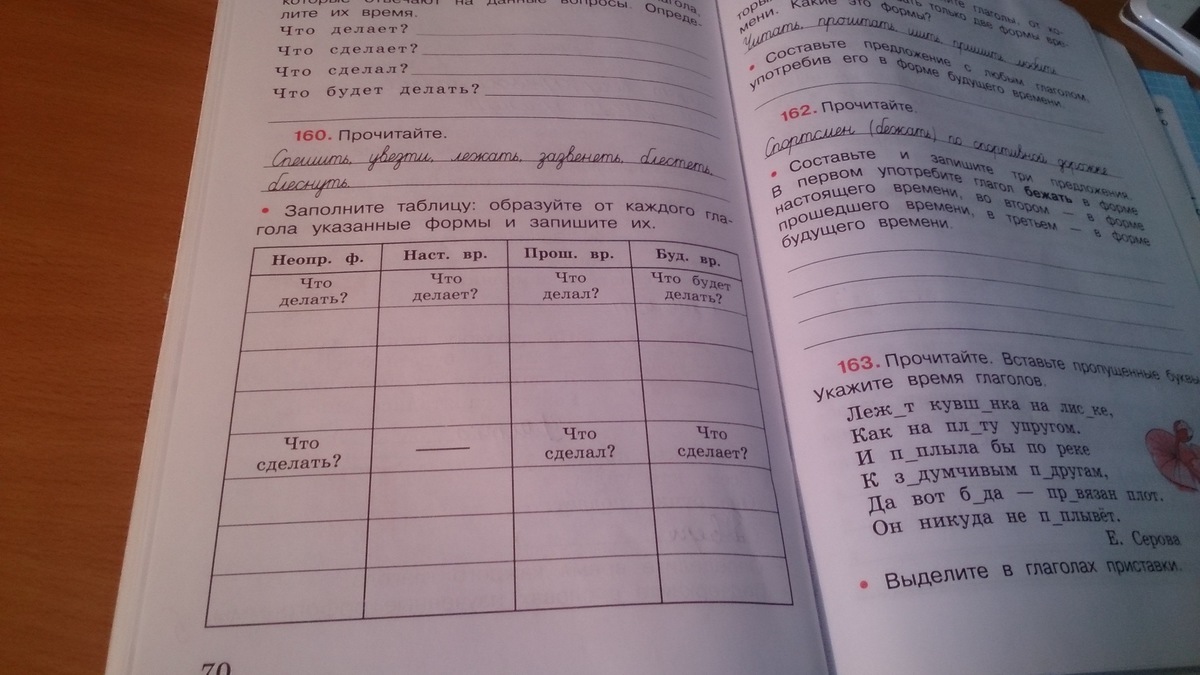 которые отвечают на данные вопросы. Опреде-
лите их время.
Что делает?
Что сделает?
Что сделал?
Что будет делать?
160. Прочитайте.
Спешить, увезти, лежать, зазвенеть, блестеть,
блеснуть.
• Заполните таблицу: образуйте от каждого гла-
гола указанные формы и запишите их.
Неопр. ф. Наст. вр. Прош. вр. Буд. вр.
Что делать? Что делает? Что делал? Что будет делать?
Что сделать? — Что сделал? Что сделает?
70
глаголы, от ко-
только две формы вре-
мени. Какие это формы?
Читать, прочитать, шить, пришить, любить
• Составьте предложение с любым глаголом,
употребив его в форме будущего времени.
162. Прочитайте.
Спортсмен (бежать) по спортивной дорожке
• Составьте и запишите три предложения.
В первом употребите глагол бежать в форме
настоящего времени, во втором — в форме
прошедшего времени, в третьем — в форме
будущего времени.
163. Прочитайте. Вставьте пропущенные буквы
Укажите время глаголов.
Леж_т кувш_нка на лис_ке,
Как на пл_ту упругом.
И п_плыла бы по реке
К з_думчивым п_другам,
Да вот б_да — пр_вязан плот.
Он никуда не п_плывёт.
Е. Серова
• Выделите в глаголах приставки.